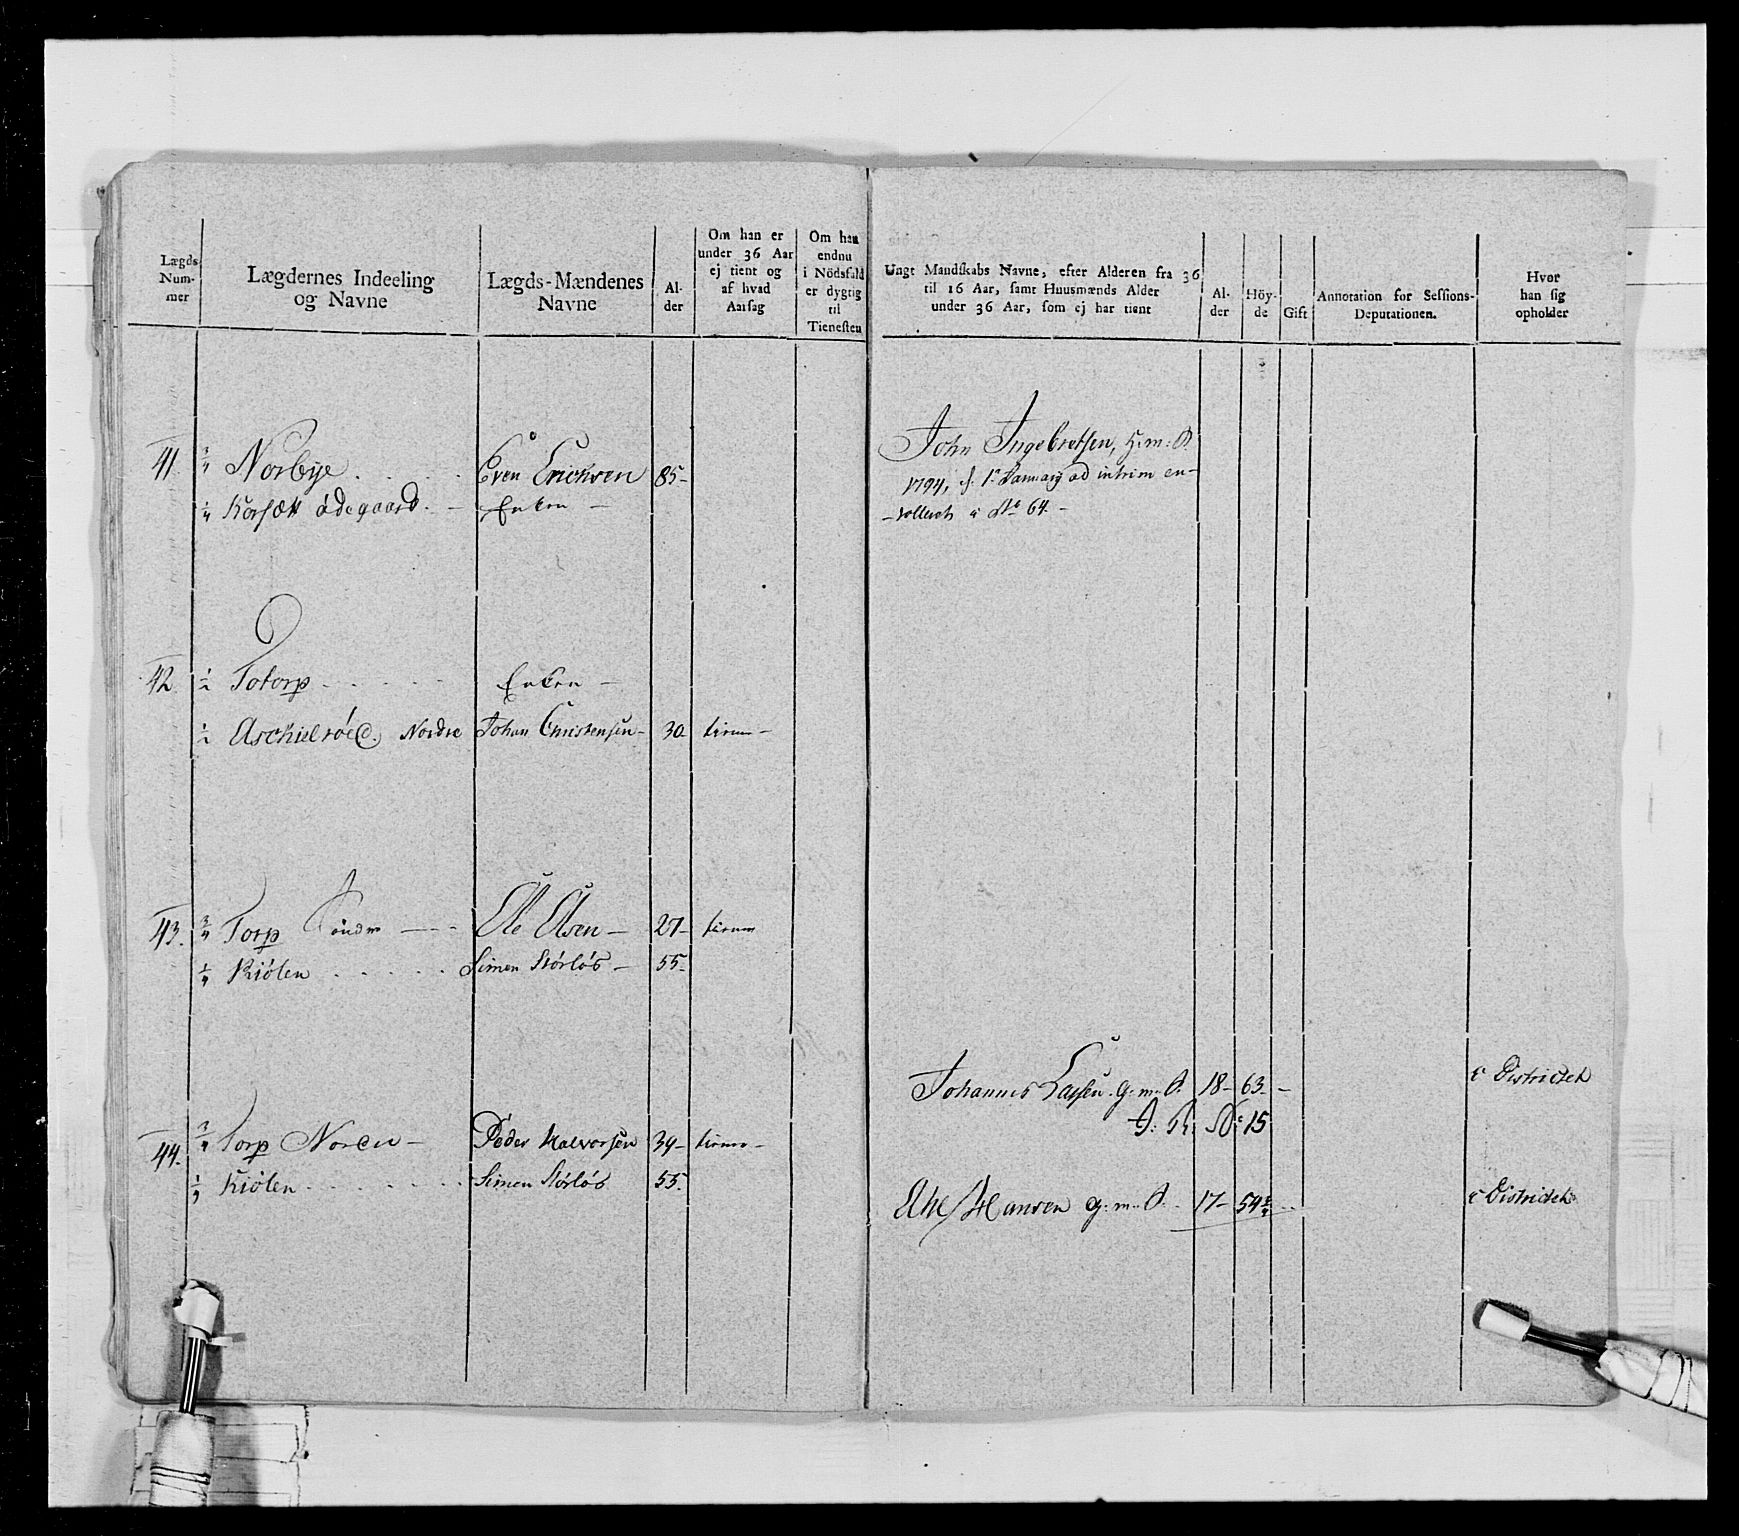 Lægds Num- mer
Lægdernes Indeeling og Navne
Lægds-Mændenes Navne
Al- der
Om han er under 36 Aar ej tient og af hvad Aarsag
Om han endnu i Nödsfald er dygtig til Tienesten
Ungt Mandskabs Navne, efter Alderen fra 36 til 16 Aar, samt Huusmænds Alder under 36 Aar, som ej har tient
Al- der
Höy- de
Gift
Annotation for Sessions- Deputationen.
Hvor han sig opholder
41. 3/4 Norbye Even Erichsen 85
1/4 Korsæth ödegaard. Enken
John Ingebretsen, H: m: S.
1794, d. 1 Januarij ad intrim en-
rollert a No 64.
42 1/2 Totorp Enken
1/2 Aschielröe Nordre Johan Christensen 30
43. 3/4 Torp Söndre Ole Olsen 27
1/4 Kiölen Simen Störlös 55
Johannes Lassen G: m: S. 18 63 i Districtet
No 15
44. 3/4 Torp Norden Peder Halvorsen 34
1/4 Kiölen Simen Störlös 55
Hansen G: m: S. 17 54 i Districtet